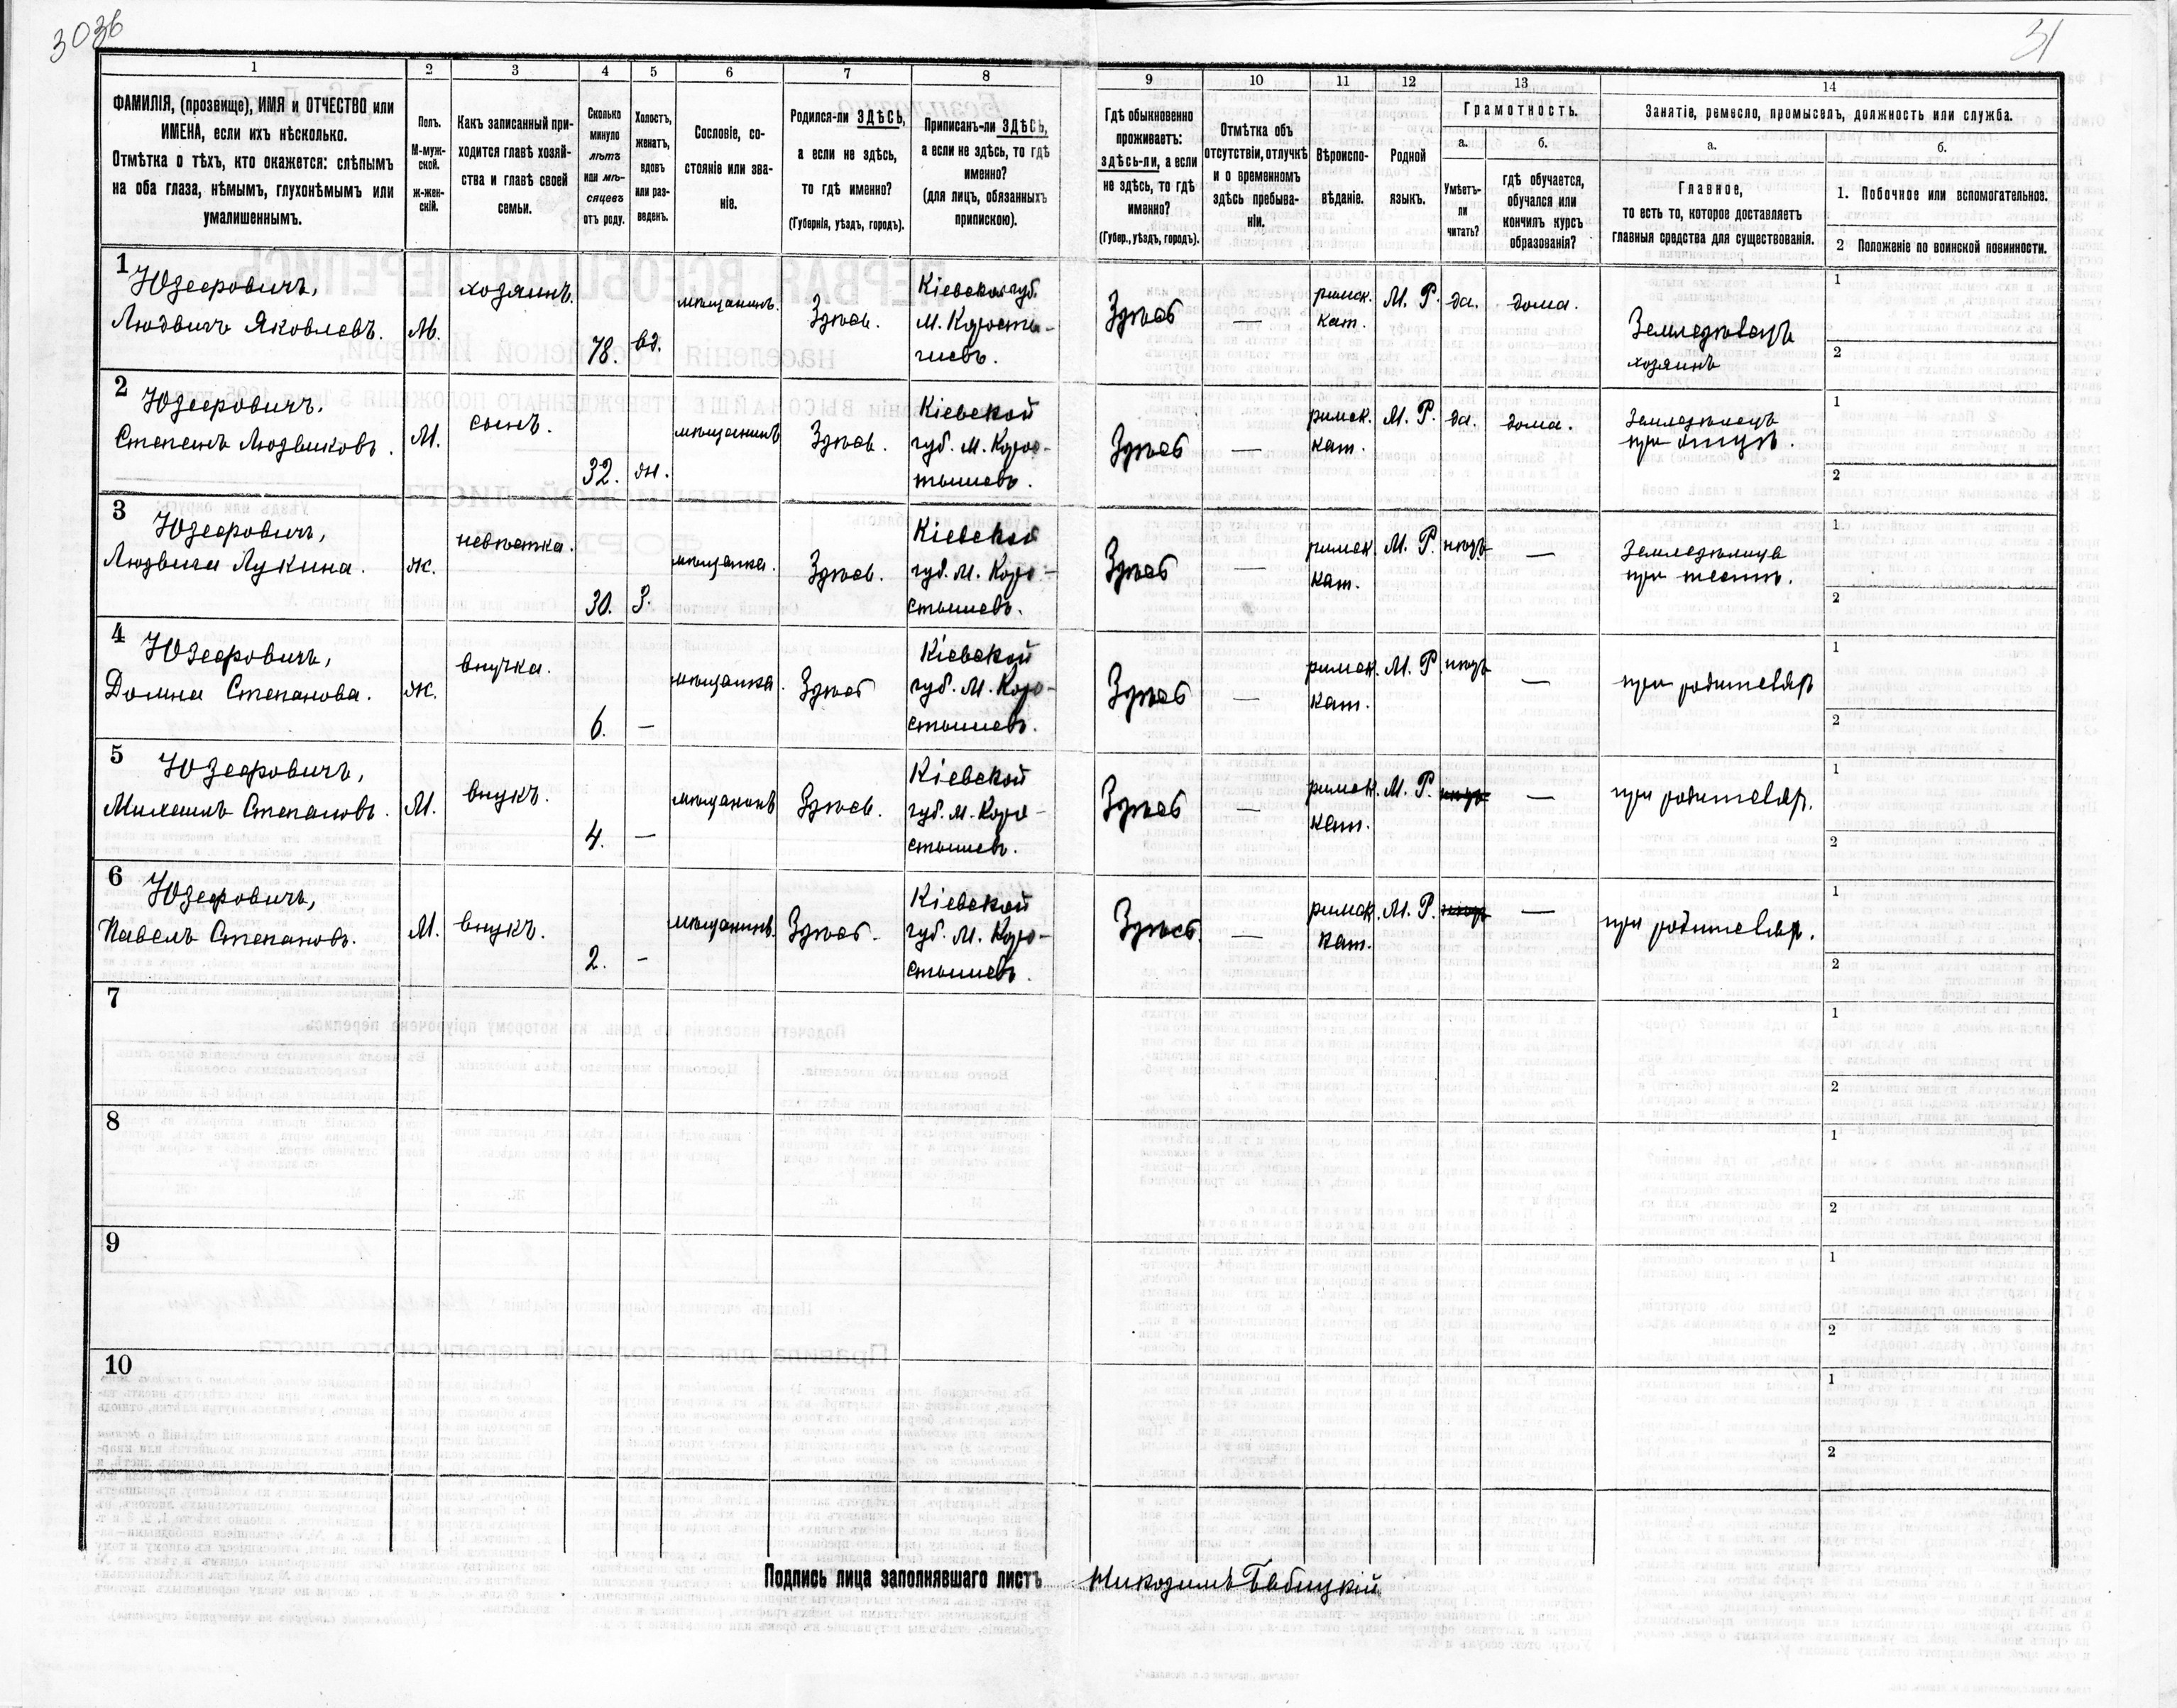 3036
31
1
2
3
4
5
6
7
8
9
10
11
12
13
14
ФАМИЛІЯ, (прозвище), ИМЯ и ОТЧЕСТВО или
ИМЕНА, если ихъ нѣсколько.
Отмѣтка о тѣхъ, кто окажется: слѣпымъ
на оба глаза, нѣмымъ, глухонѣмымъ или
умалишеннымъ.
Полъ.
М-муж-
ской.
ж-жен-
скій.
Какъ записанный при-
ходится главѣ хозяй-
ства и главѣ своей
семьи.
Сколько
минуло
лѣтъ
или мѣ-
сяцевъ
отъ роду.
Холостъ,
женатъ,
вдовъ
или раз-
веденъ.
Сословіе, со-
стояніе или зва-
ніе.
Родился-ли ЗДѢСЬ,
а если не здѣсь,
то гдѣ именно?
(Губернія, уѣздъ, городъ).
Приписанъ-ли ЗДѢСЬ,
а если не здѣсь, то гдѣ
именно?
(для лицъ, обязанныхъ
припискою).
Гдѣ обыкновенно
проживаетъ:
здѣсь-ли, а если
не здѣсь, то гдѣ
именно?
(Губер., уѣздъ, городъ).
Отмѣтка объ
отсутствіи, отлучкѣ
и о временномъ
здѣсь пребыва-
ніи.
Вѣроиспо-
вѣданіе.
Родной
языкъ.
Грамотность.
а.
Умѣетъ-
ли
читать?
б.
гдѣ обучается,
обучался или
кончилъ курсъ
образованія?
Занятіе, ремесло, промыселъ, должность или служба.
а.
Главное,
то есть то, которое доставляетъ
главныя средства для существованія.
б.
1. Побочное или вспомогательное.
2 Положеніе по воинской повинности.
1
Юзефовичъ,
Людвигъ Яковлевъ.
М.
хозяинъ.
78.
вд.
мѣщанинъ.
Здѣсь.
Кіевской губ.
М. Коросты-
шевъ.
Здѣсь
—
римск.
кат.
М. Р.
да.
дома.
Земледѣлецъ
хозяинъ
1
2
2
Юзефовичъ.
Степанъ Людвиковъ.
М.
сынъ.
32.
ж.
мѣщанинъ
Здѣсь.
Кіевской
губ. М. Коро-
стышевъ.
Здѣсь
—
римск.
кат.
М. Р.
да.
дома.
Земледѣлецъ
при отцѣ.
1
2
3
Юзефовичъ,
Людвига Лукина.
ж.
невѣстка.
30.
З.
мѣщанка.
Здѣсь.
Кіевской
губ. М. Коро-
стышевъ.
Здѣсь
—
римск.
кат.
М. Р.
нѣтъ
—
Земледѣлица
при тестѣ.
1
2
4
Юзефовичъ,
Домна Степанова.
ж.
внучка.
6.
—
мѣщанка.
Здѣсь
Кіевской
губ. М. Коро-
стышевъ.
Здѣсь
—
римск.
кат.
М. Р.
нѣтъ
—
при родителяхъ
1
2
5
Юзефовичъ,
Михаилъ Степановъ.
М.
внукъ.
4.
—
мѣщанинъ
Здѣсь.
Кіевской
губ. М. Коро-
стышевъ.
Здѣсь
—
римск.
кат.
М. Р.
нѣтъ
—
при родителях.
1
2
6
Юзефовичъ,
Павелъ Степановъ.
М.
внукъ.
2.
-
мѣщанинъ.
Здѣсь.
Кіевской
губ. М. Коро-
стышевъ.
Здѣсь.
—
римск.
кат.
М. Р.
нѣтъ
—
при родителях.
1
2
7
1
2
8
1
2
9
1
2
10
1
2
Подпись лица заполнявшаго листъ Никодимъ Бабицкій